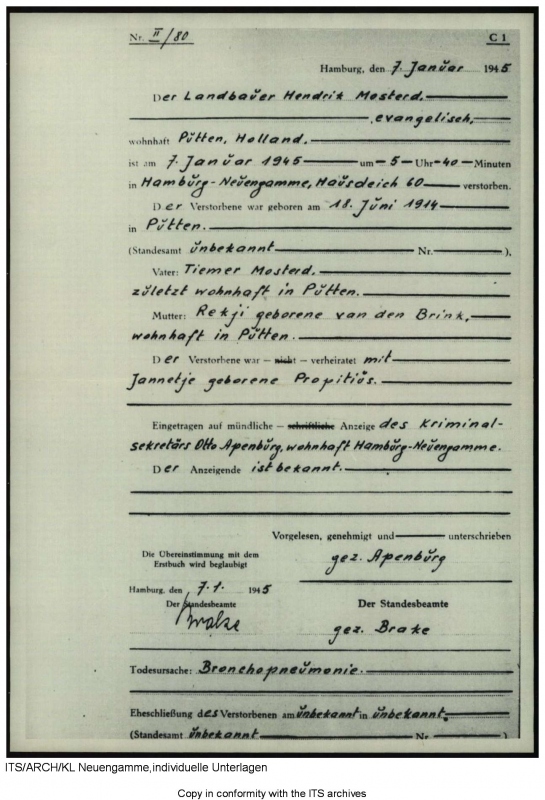 Nr. II/80 C 1
Hamburg, den 7. Januar 1945
Der Landbauer Hendrik Mosterd,
, evangelisch,
wohnhaft Putten, Holland,
ist am 7. Januar 1945 um 5 Uhr 40 Minuten
in Hamburg-Neuengamme, Hausdeich 60 verstorben.
Der Verstorbene war geboren am 18. Juni 1914
in Putten.
(Standesamt unbekannt Nr. ),
Vater: Tiemer Mosterd,
zuletzt wohnhaft in Putten.
Mutter: Rekji geborene van den Brink,
wohnhaft in Putten.
Der Verstorbene war – nicht – verheiratet mit
Jannetje geborene Propitius.
Eingetragen auf mündliche – schriftliche Anzeige des Kriminal-
sekretärs Otto Apenburg, wohnhaft Hamburg-Neuengamme.
Der Anzeigende ist bekannt.
Vorgelesen, genehmigt und unterschrieben
gez. Apenburg
Die Übereinstimmung mit dem
Erstbuch wird beglaubigt
Hamburg, den 7.1. 1945
Der Standesbeamte
Brake
Der Standesbeamte
gez. Brake
Todesursache: Bronchopneumonie.
Eheschließung des Verstorbenen am unbekannt in unbekannt.
(Standesamt unbekannt Nr. )
ITS/ARCH/KL Neuengamme,individuelle Unterlagen
Copy in conformity with the ITS archives